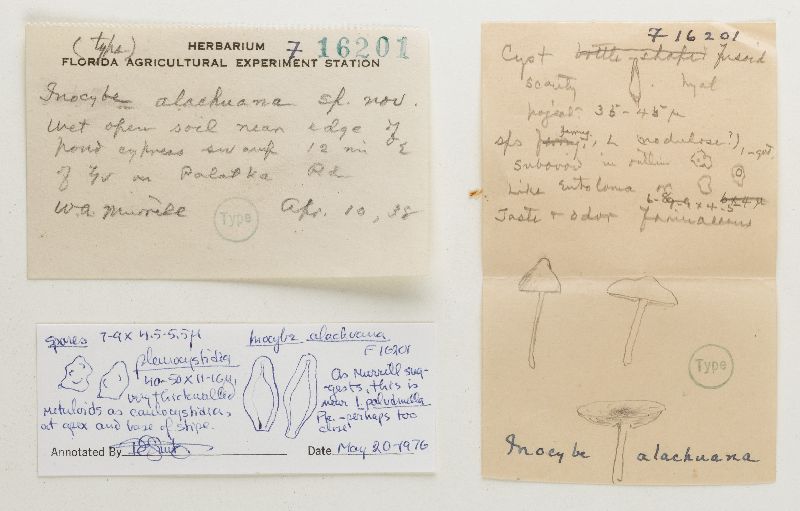 (type) HERBARIUM F 16201
FLORIDA AGRICULTURAL EXPERIMENT STATION
Inocybe alachuana sp. nov.
Wet open soil near edge of
pond cypress swamp 12 mi E
of Gv on Palatka Rd.
W.A. Murrill Type Apr. 10, 38
Spores 7-9 x 4.5-5.5 µ
Inocybe alachuana
F 16201
pleurocystidia
40-50 x 11-16 µ,
very thickwalled
metuloids as caulocystidia
at apex and base of stipe.
As Murrill sug-
-gests, this is
near I. paludinella
Pk. - perhaps too
close!
Annotated By Date May 20-1976
F 16201
Cyst bottle-shaped fusoid
scanty hyal
project 35-45 µ
sps, L nodulose?), 1-gut.
subovoid in outline
Like Entoloma or
6-8 x 4-5 6x4 µ
Taste & odor farinaceous
Type
Inocybe alachuana